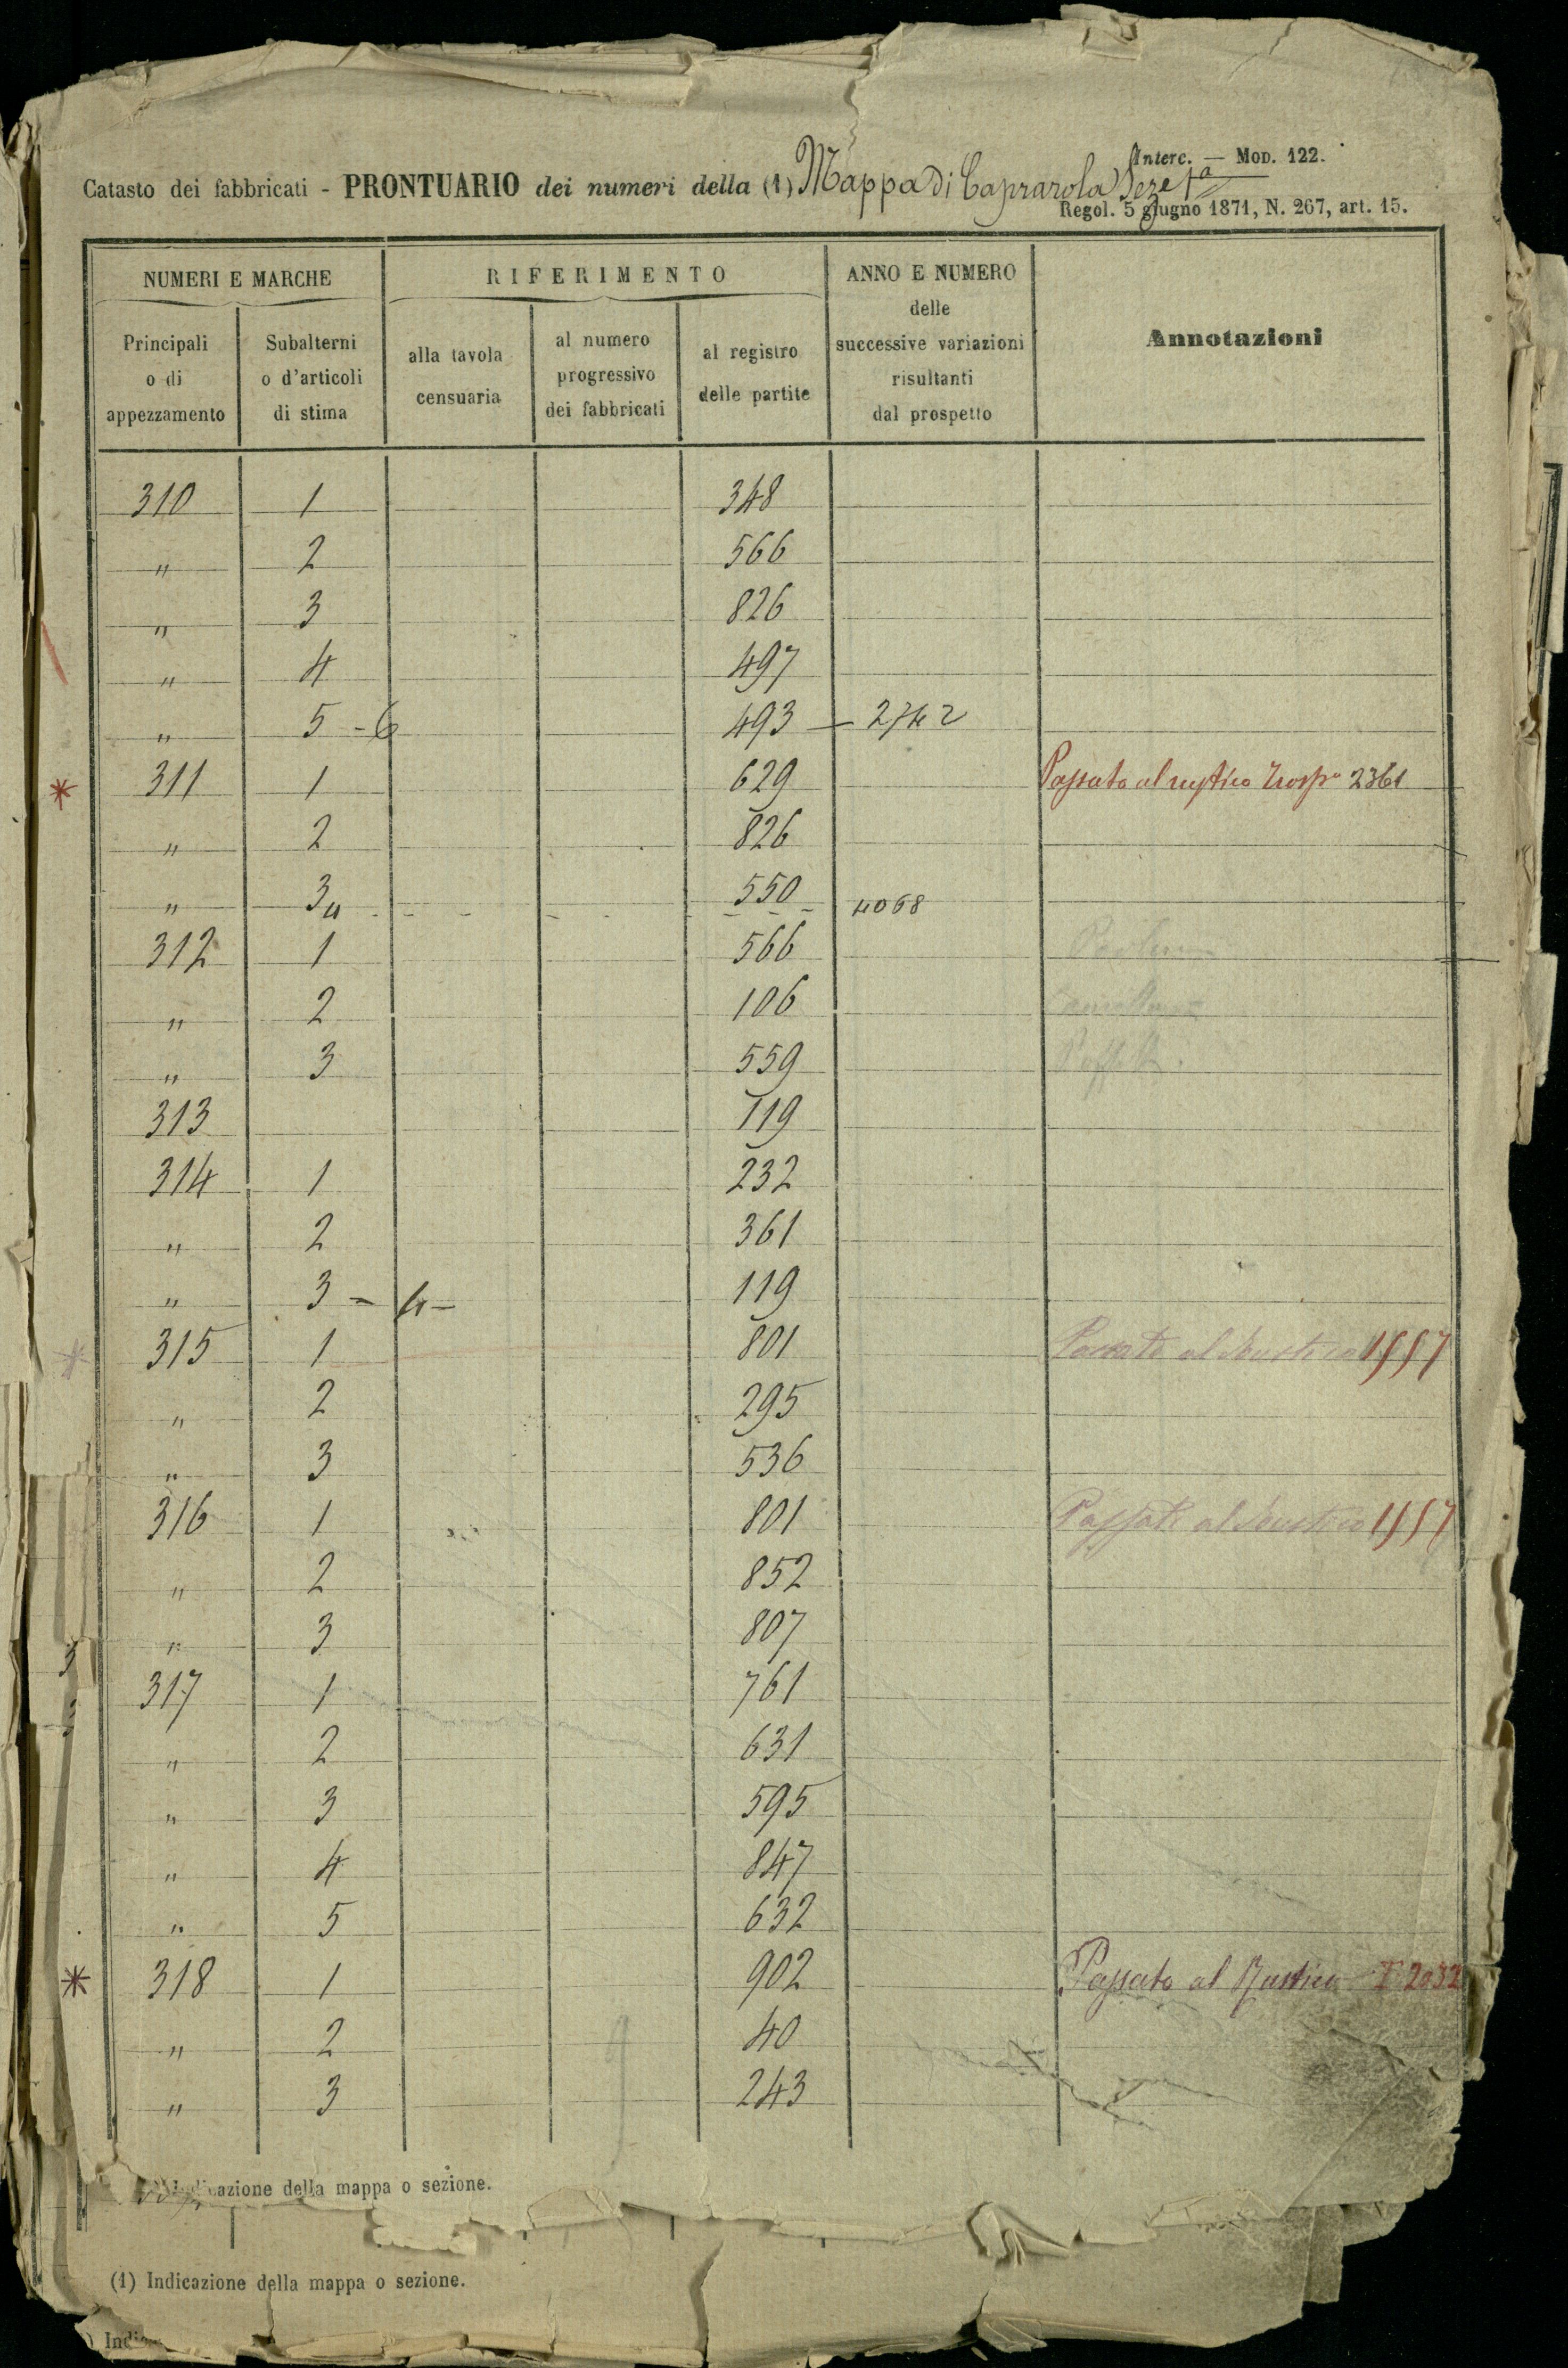 Interc. — Mod. 122.
Catasto dei fabbricati - PRONTUARIO dei numeri della (1) Mappa di Caprarola Seze 1a
Regol. 5 giugno 1871, N. 267, art. 15.
NUMERI E MARCHE RIFERIMENTO ANNO E NUMERO delle successive variazioni risultanti dal prospetto Annotazioni
Principali o di appezzamento Subalterni o d'articoli di stima alla tavola censuaria al numero progressivo dei fabbricati al registro delle partite
310 1 348
" 2 566
" 3 826
" 4 497
" 5 - 6 493 — 2742
* 311 1 629 Passato al rustico 2361
" 2 826
" 3 4 550 4068
312 1 566
" 2 106
" 3 559
313 119
314 1 232
" 2 361
" 3 - 4 - 119
* 315 1 801 Passato al Rustico
" 2 295
" 3 536
316 1 801 Passato al Rustico
" 2 852
" 3 807
317 1 761
" 2 631
" 3 595
" 4 847
" 5 632
* 318 1 902 Passato al Rustico T 2032
" 2 40
" 3 243
Indicazione della mappa o sezione.
(1) Indicazione della mappa o sezione.